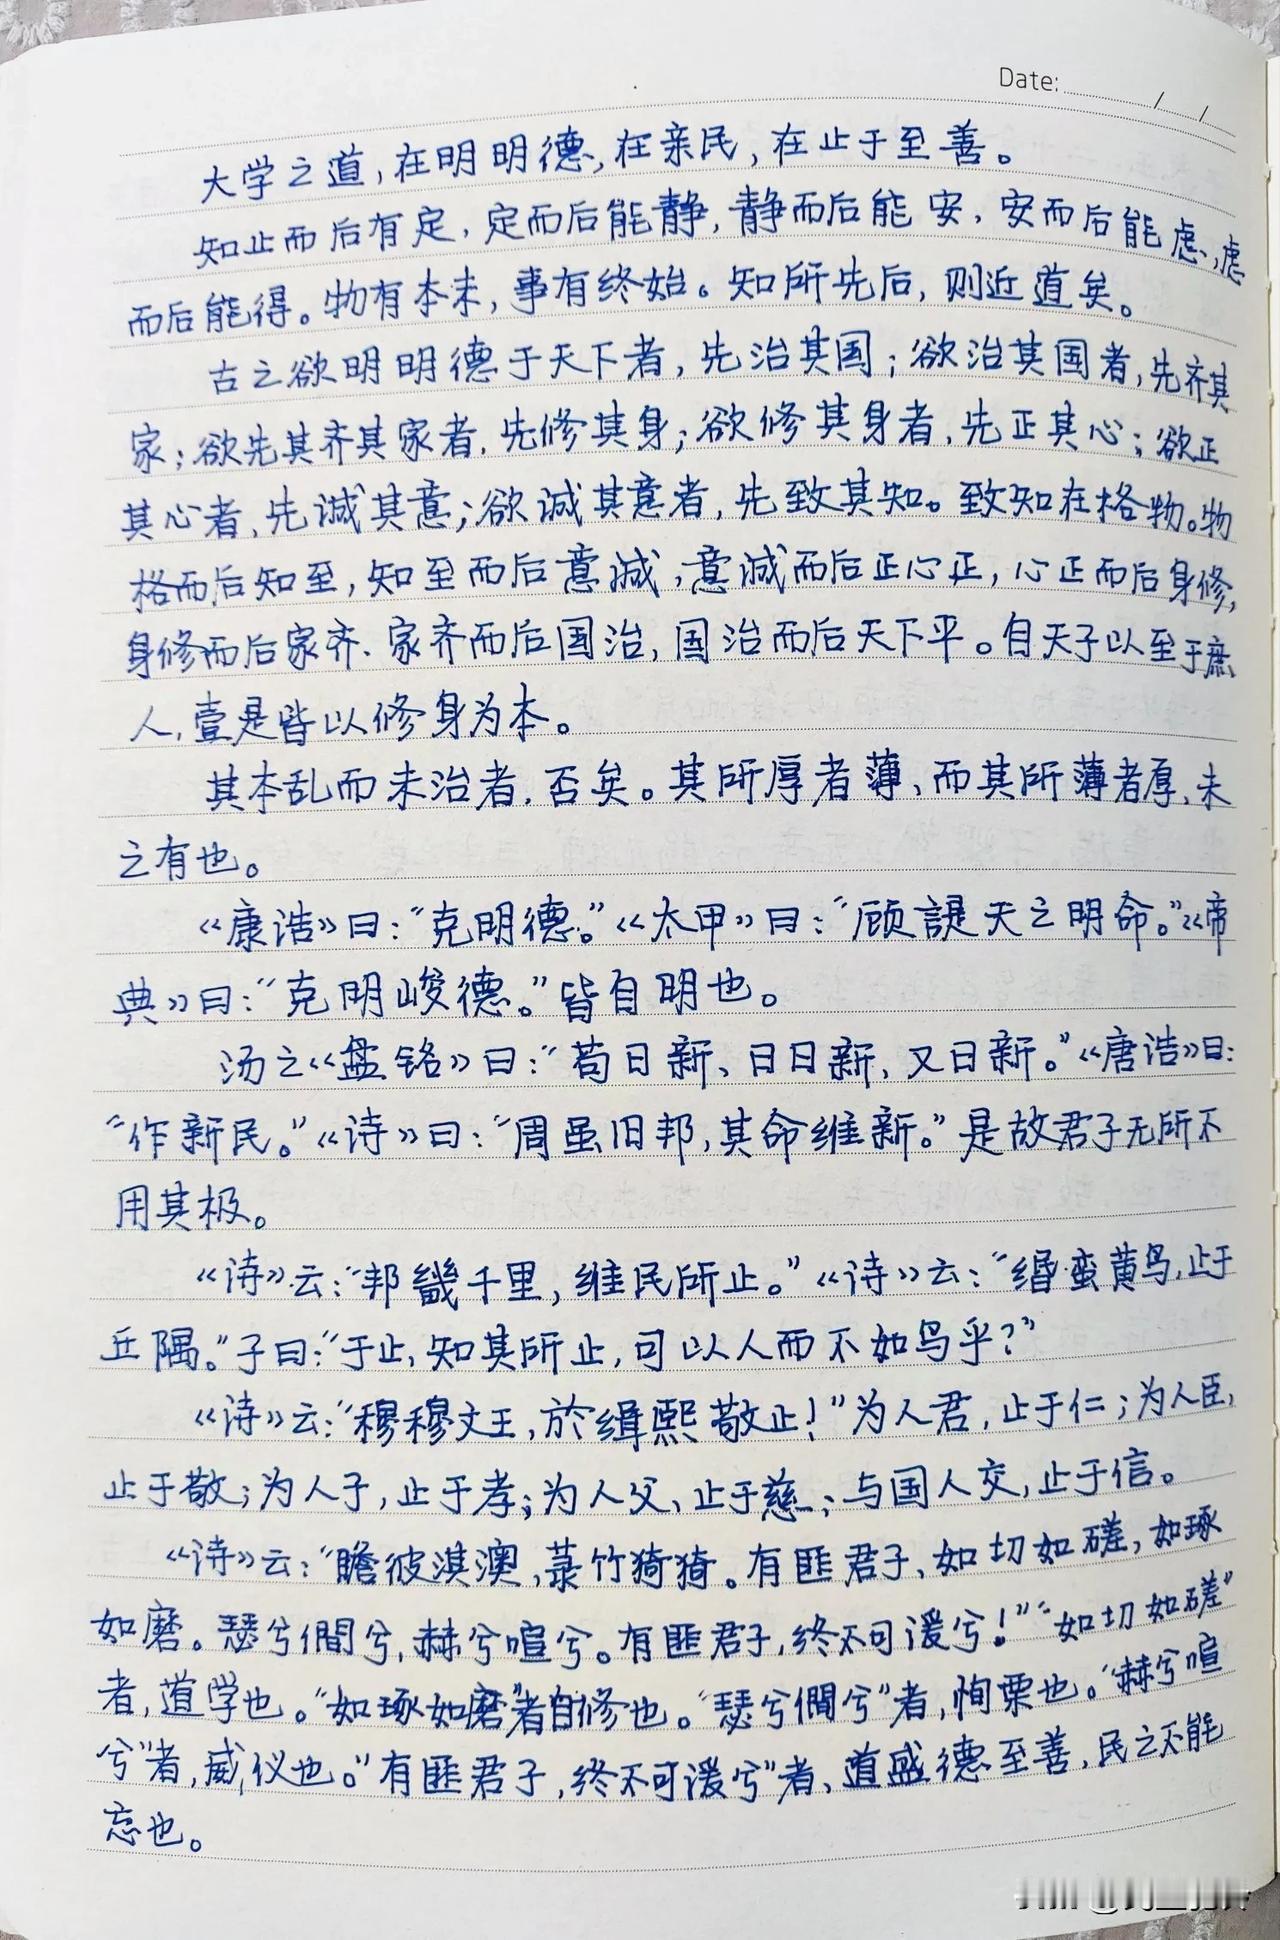 Date: / /
大学之道,在明明德,在亲民,在止于至善。
知止而后有定,定而后能静,静而后能安,安而后能虑,虑
而后能得。物有本末,事有终始。知所先后,则近道矣。
古之欲明明德于天下者,先治其国;欲治其国者,先齐其
家;欲先其齐其家者,先修其身;欲修其身者,先正其心;欲正
其心者,先诚其意;欲诚其意者,先致其知。致知在格物。物
格而后知至,知至而后意诚,意诚而后正心正,心正而后身修,
身修而后家齐、家齐而后国治,国治而后天下平。自天子以至于庶
人,壹是皆以修身为本。
其本乱而末治者,否矣。其所厚者薄,而其所薄者厚,未
之有也。
《康浩》曰:“克明德。”《太甲》曰:“顾諟天之明命。”《帝
典》曰:“克明峻德。”皆自明也。
汤之《盘铭》曰:“苟日新、日日新,又日新。”《唐浩》曰:
“作新民。”《诗》曰:“周虽旧邦,其命维新。”是故君子无所不
用其极。
《诗》云:“邦畿千里,维民所止。”《诗》云:“缗蛮黄鸟,止于
丘隅。”子曰:“于止,知其所止,可以人而不如鸟乎?”
《诗》云:“穆穆文王,於缉熙敬止!”为人君,止于仁;为人臣,
止于敬;为人子,止于孝;为人父,止于慈;与国人交,止于信。
《诗》云:“瞻彼淇澳,菉竹猗猗。有匪君子,如切如磋,如琢
如磨。瑟兮僩兮,赫兮喧兮。有匪君子,终不可湲兮!”“如切如磋”
者,道学也。“如琢如磨”者自修也。“瑟兮僩兮”者,恂栗也。“赫兮喧
兮”者,威仪也。“有匪君子,终不可湲兮”者,道盛德至善,民之不能
忘也。